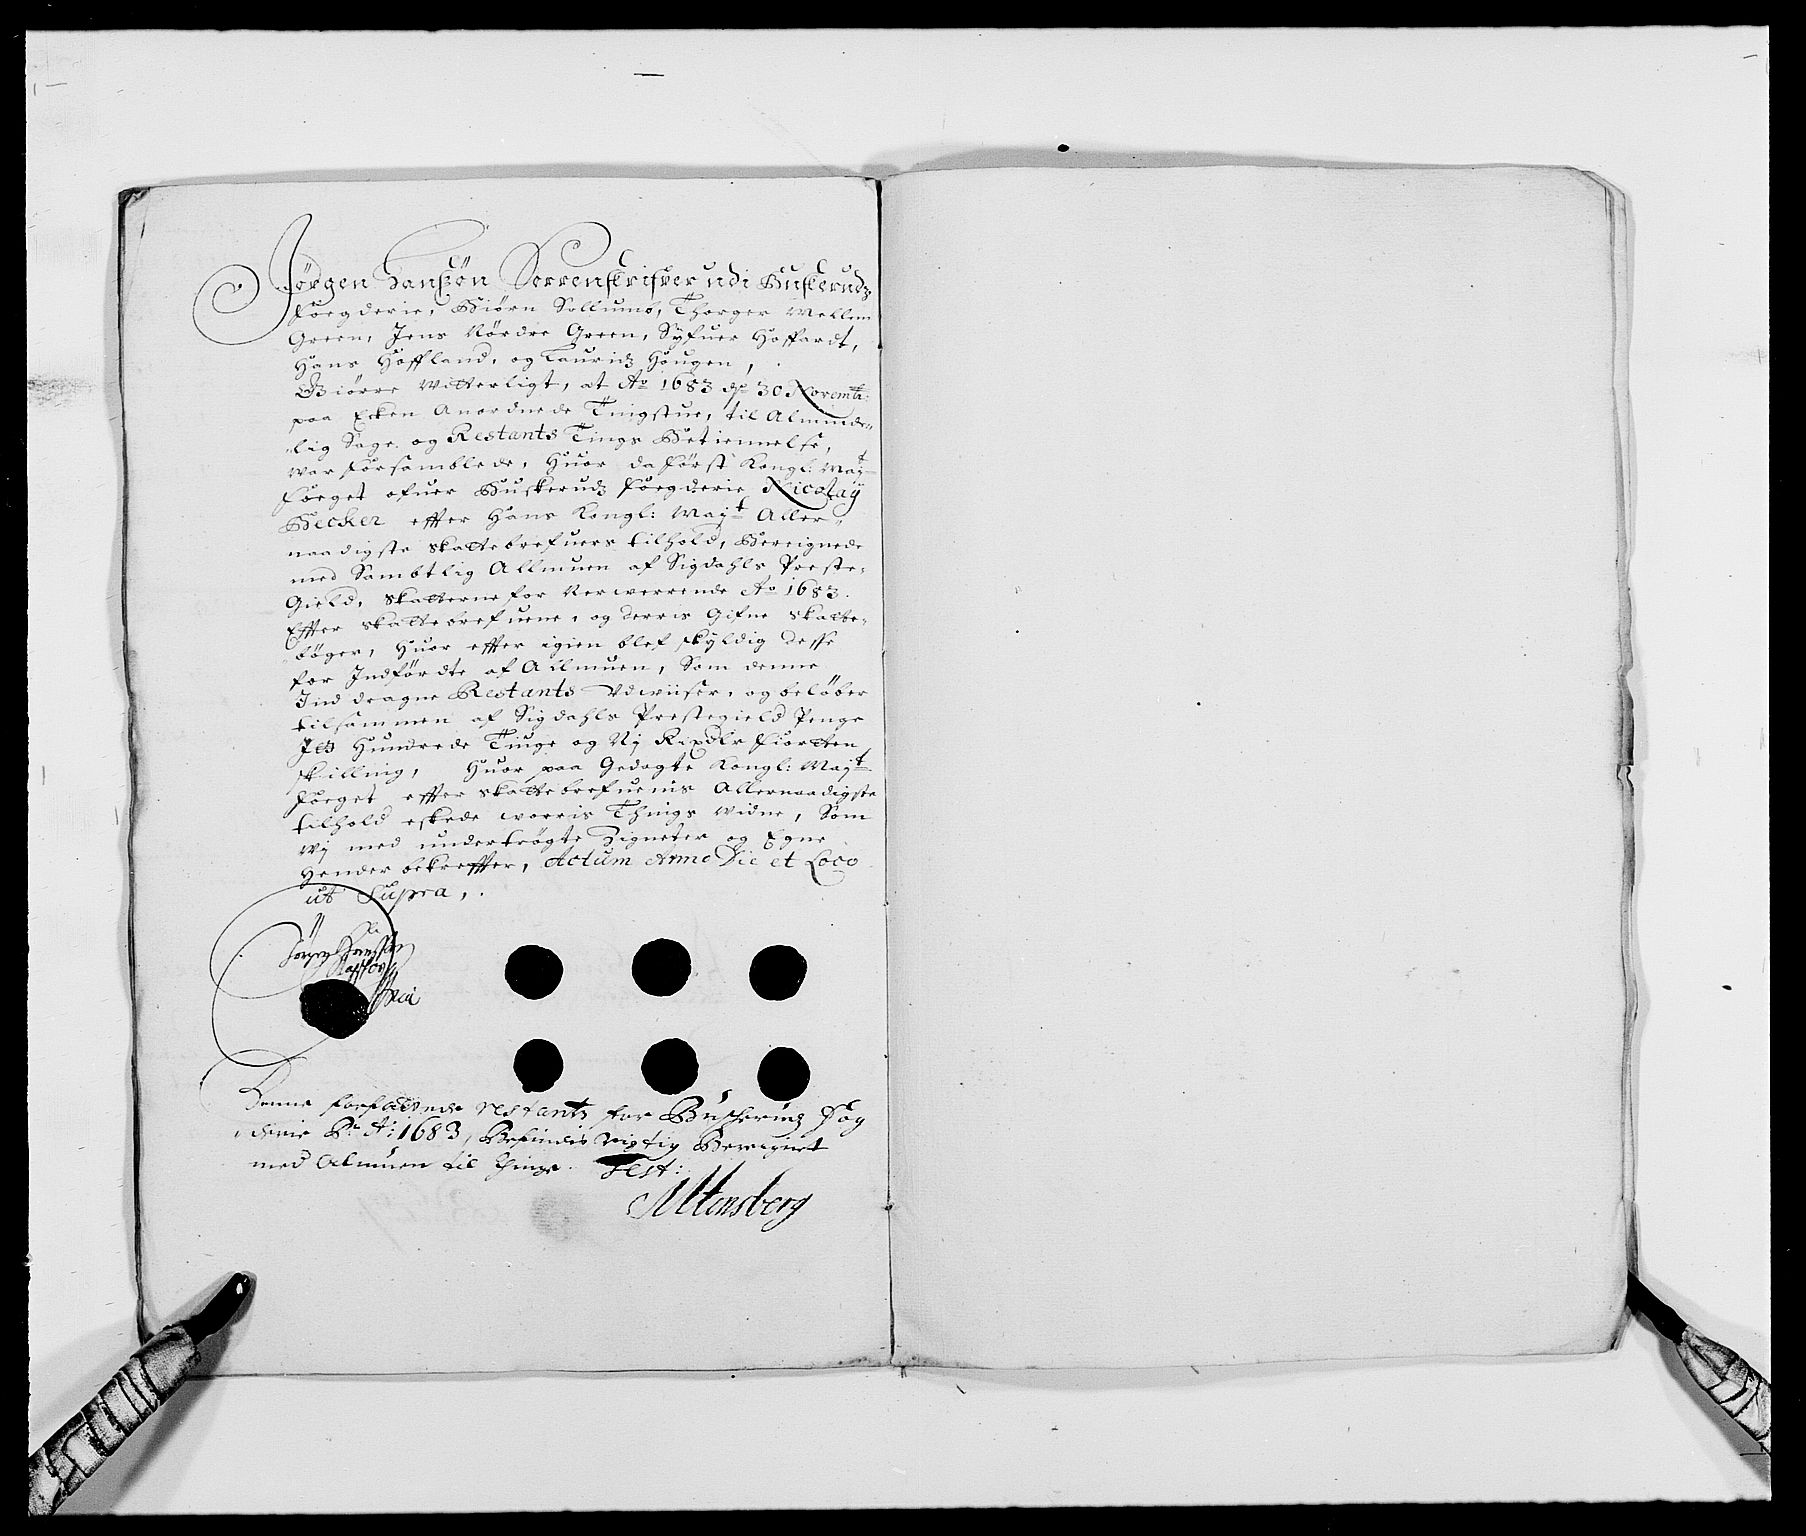 Jörgen Hanßön Sorrenskrifver udi Buskeruds
foegderie, Biörn Sollumb, Thorger Mellem
Green, Jens Nördre Green, Syfuer Hoffardt,
Hans Hoffland, og Lauridz Hougen,
Giörre Witterligt, at Ao 1683 dn 30 Novemb:
paa Ecken Anordnede Tingstue, til Alminde-
lig Sage og Restants Tings Betiennelse,
war forsamblede, Huor da först Kongl: Mayt
foeget ofuer Buskerudz foegderie Nicolay
Becker effter Hans Kongl: Mayt Aller-
naadigste skattebrefuers tilhold, Bereignede
med Sambtlig Allmuen af Sigdahls Preste-
Gield, skatterne for Nerwerrende Ao 1683.
Effter skattebrefuene, og derris Gifne skatte-
böger, Huor effter igien blef skyldig desse
for Indfördte af Allmuen, Som denne
Inddragne Restants Udwiiser, og belöber
tilsammen af Sigdahls Prestegield Penge
Hundrede Tiuge og Nj Rixdlr fiortten
skilling, Huor paa Gedagte Kongl: Mayt
foeget effter skattebrefuenis Allernaadigste
tilhold eskede worris Things Widne, Som
wj med undertrögte Zigneter og Egne
Hender bekreffter, Actum Anno Die et Loco
ut Supra,
Jörgen Hanssön
Denne forfattende restantz for Buscherudz Fog
derie Ao 1683, Befindis rigtig Bereignet
med Almuen til Tinge. Test:
AUtensberg